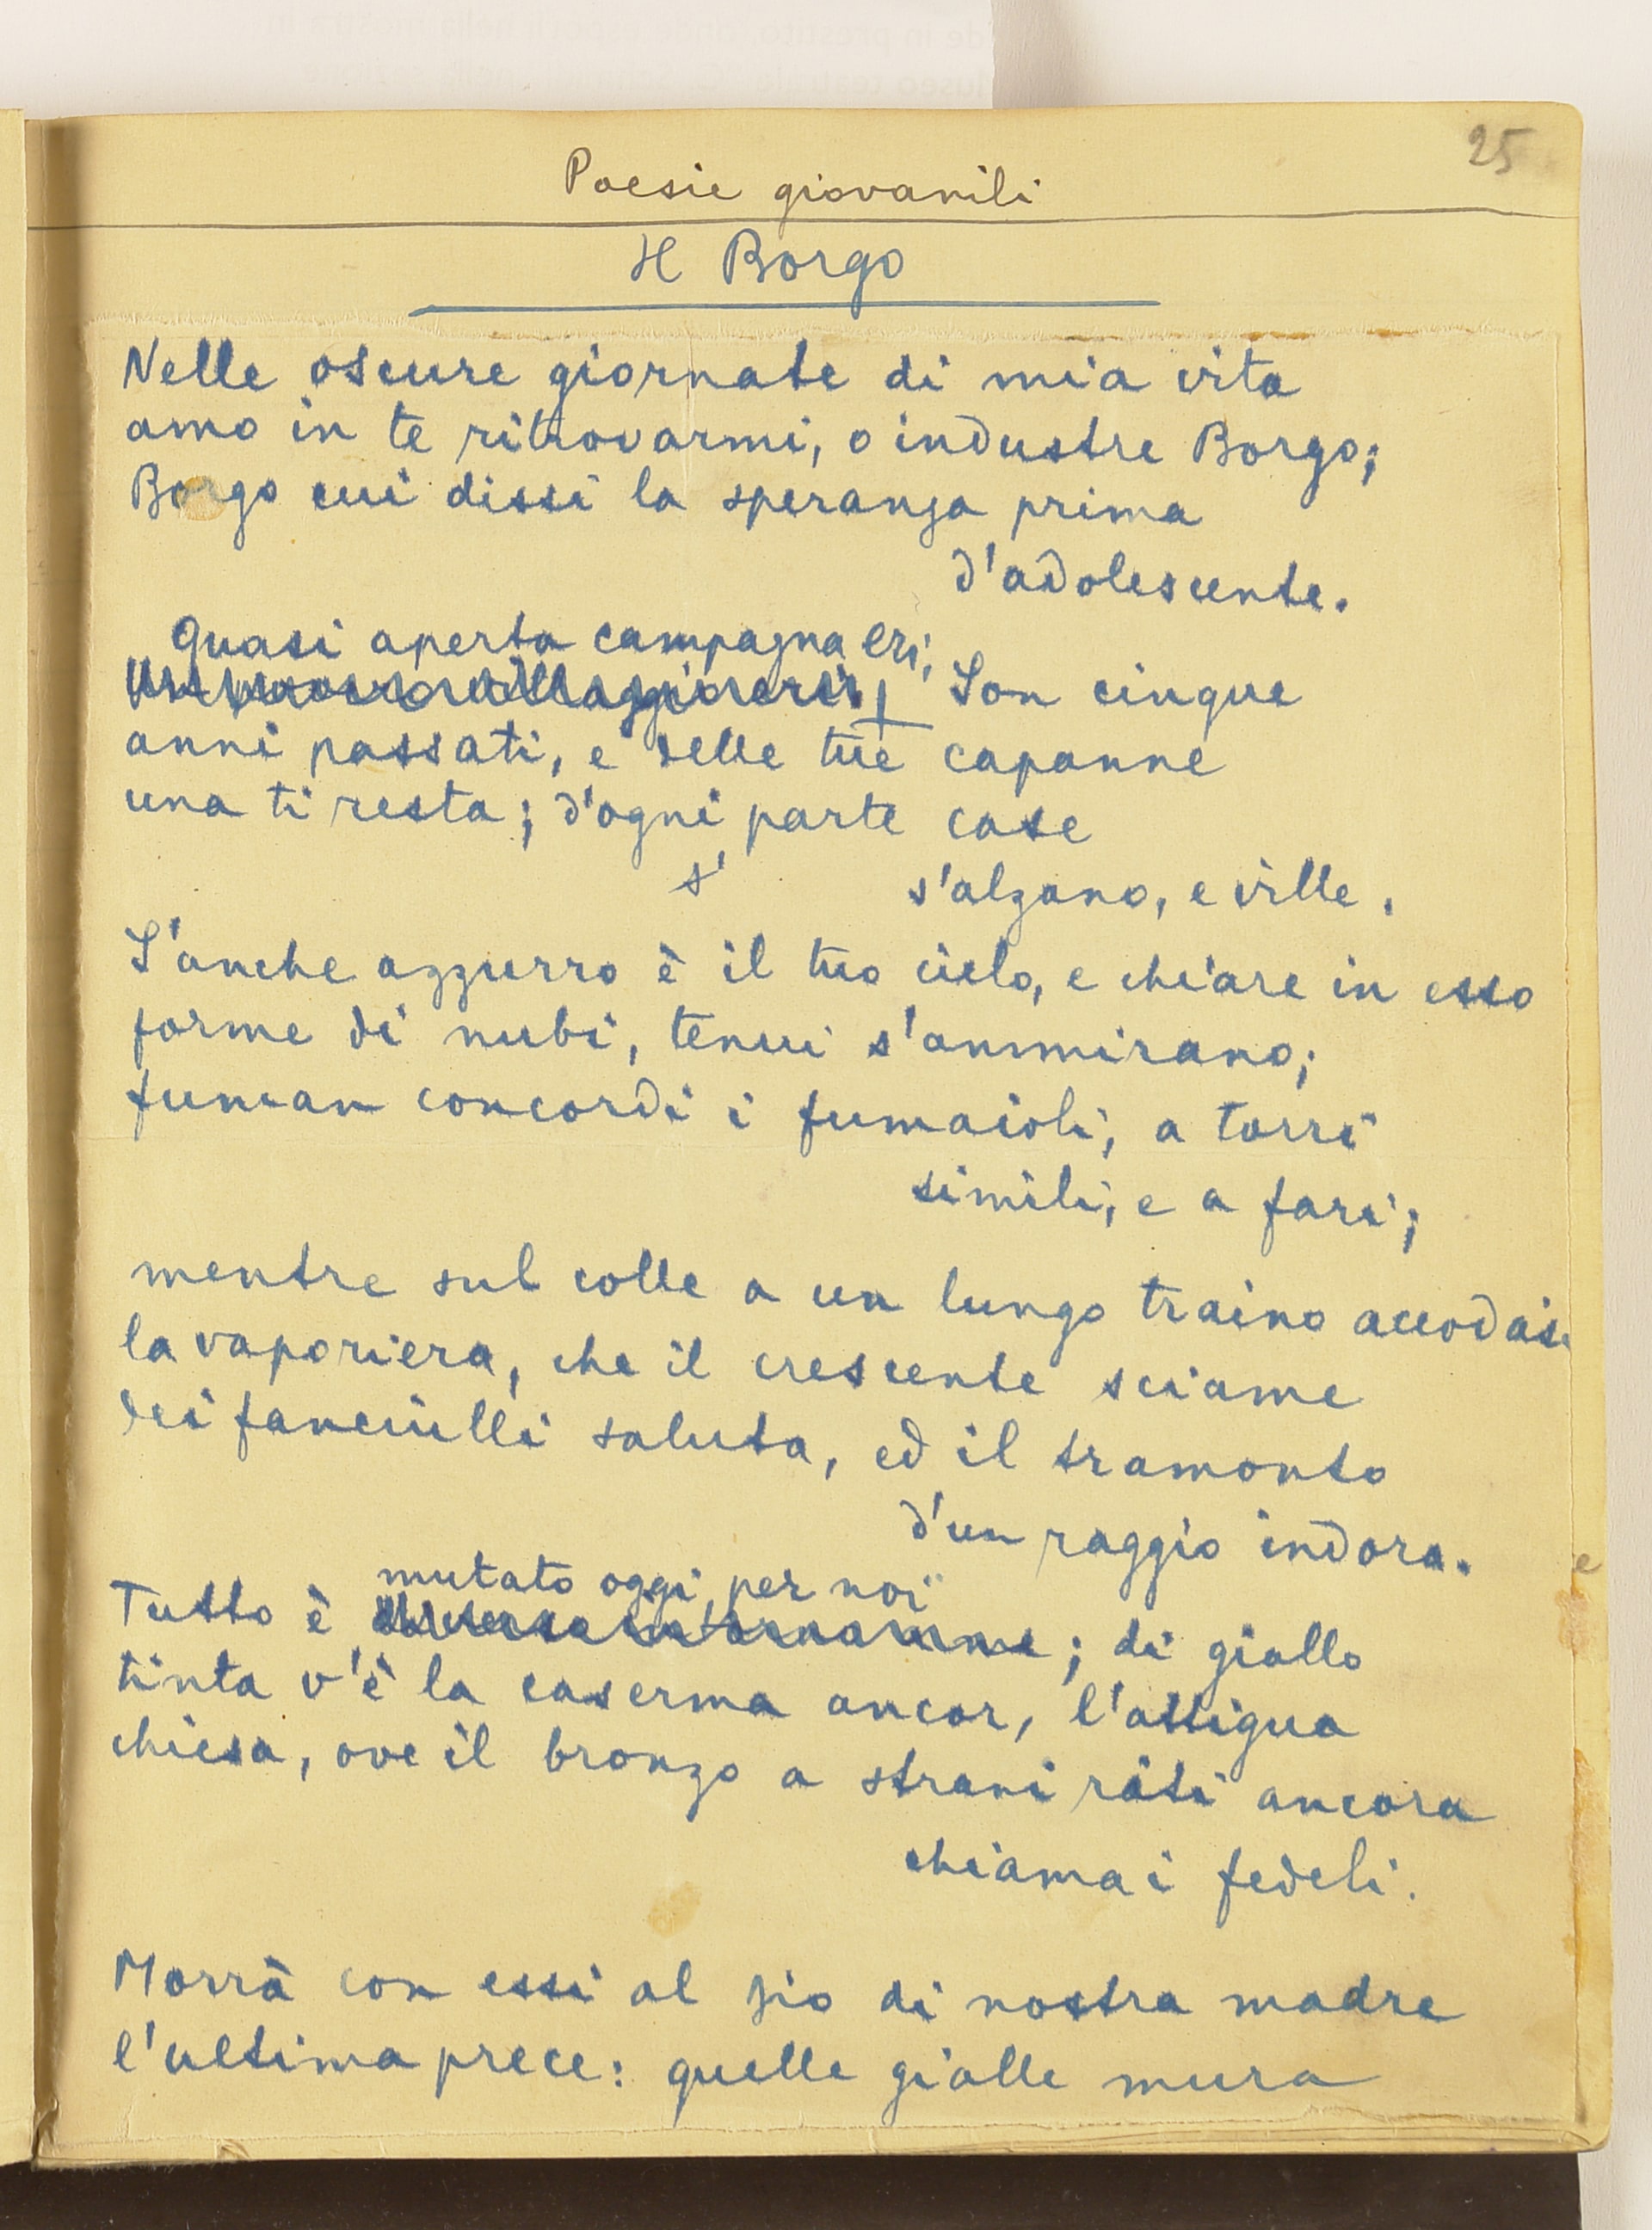 25
Poesie giovanili
Il Borgo
Nelle oscure giornate di mia vita
amo in te ritrovarmi, o industre Borgo;
Borgo cui dissi la speranza prima
d'adolescente.
Quasi aperta campagna eri,
Son cinque
anni passati, e delle tue capanne
una ti resta; d'ogni parte case
s'
s'alzano, e ville.
S'anche azzurro è il tuo cielo, e chiare in esso
forme di nubi, tenui s'ammirano;
fuman concordi i fumaioli, a torri
simili, e a fari;
mentre sul colle a un lungo traino accodasi
la vaporiera, che il crescente sciame
dei fanciulli saluta, ed il tramonto
d'un raggio indora.
mutato oggi, per noi
Tutto è ; di giallo
tinta v'è la caserma ancor, l'attigua
chiesa, ove il bronzo a strani riti ancora
chiama i fedeli.
Morrà con essi al pio di nostra madre
l'ultima prece: quelle gialle mura